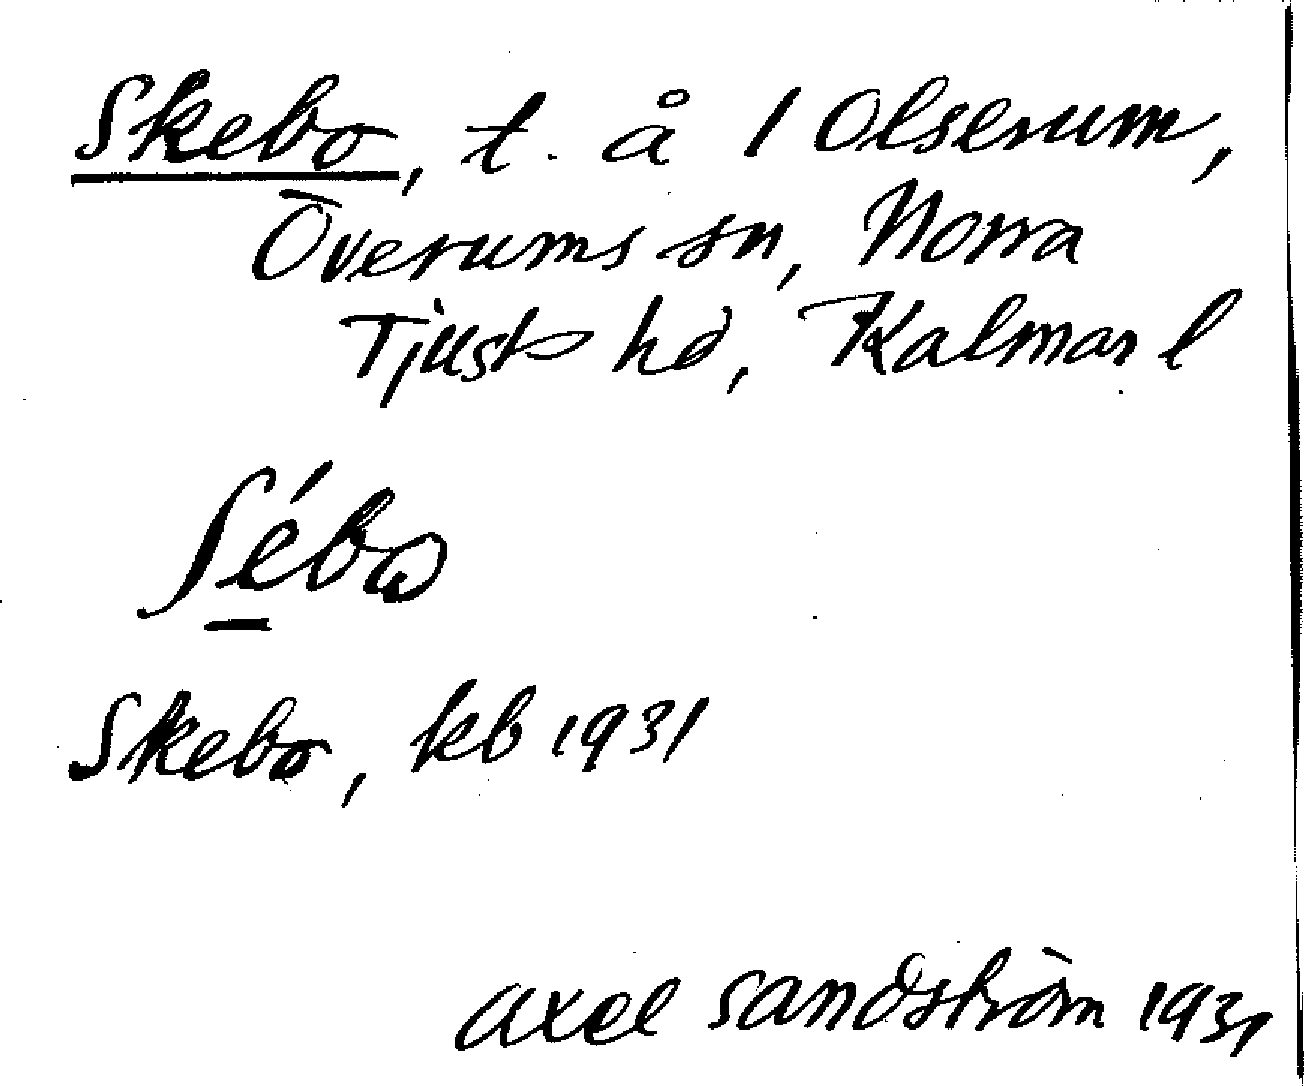 Skebo, t. å 1 Olserum,
Överums sn, Norra
Tjusts hd, Kalmar l
Skebo, kb 1931
Axel Sandström 1931